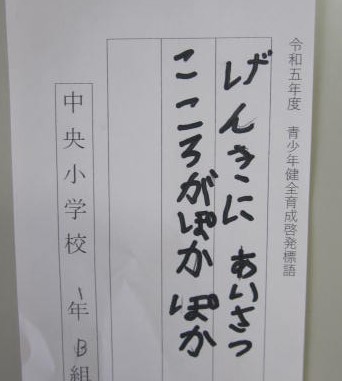 令和五年度 青少年健全育成啓発標語
げんきに あいさつ
こころがぽかぽか
中央小学校 1年B組